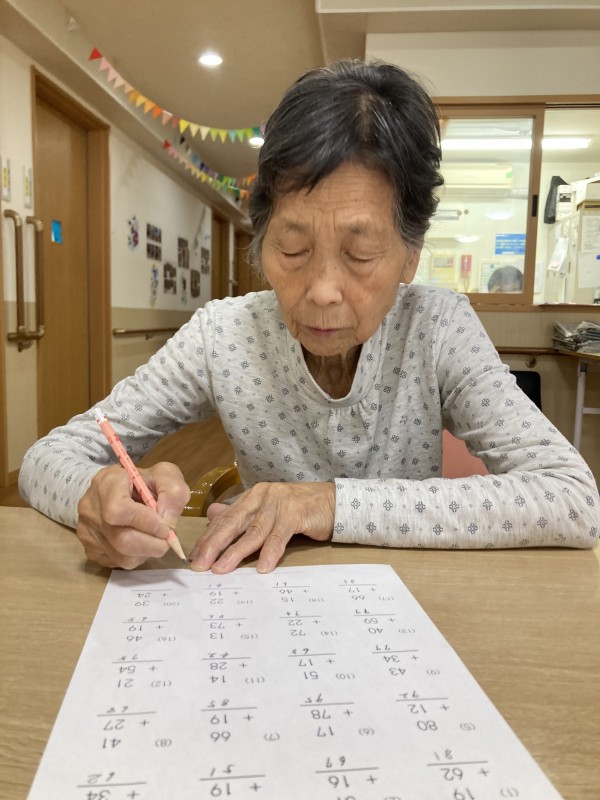 (1) 19
+ 62
81
+ 16
67
+ 19
51
+ 34
62
(5) 80 (6) 17 (7) 66 (8) 41
+ 12 + 78 + 19 + 27
92 95 85 68
(9) 43 (10) 51 (11) 14 (12) 21
+ 34 + 17 + 28 + 54
77 68 42 75
(13) 40 (14) 72 (15) 13 (16) 46
+ 59 + 22 + 73 + 19
99 94 86 65
(17) 66 (18) 15 (19) 22 (20) 39
+ 17 + 46 + 19 + 24
83 61 41